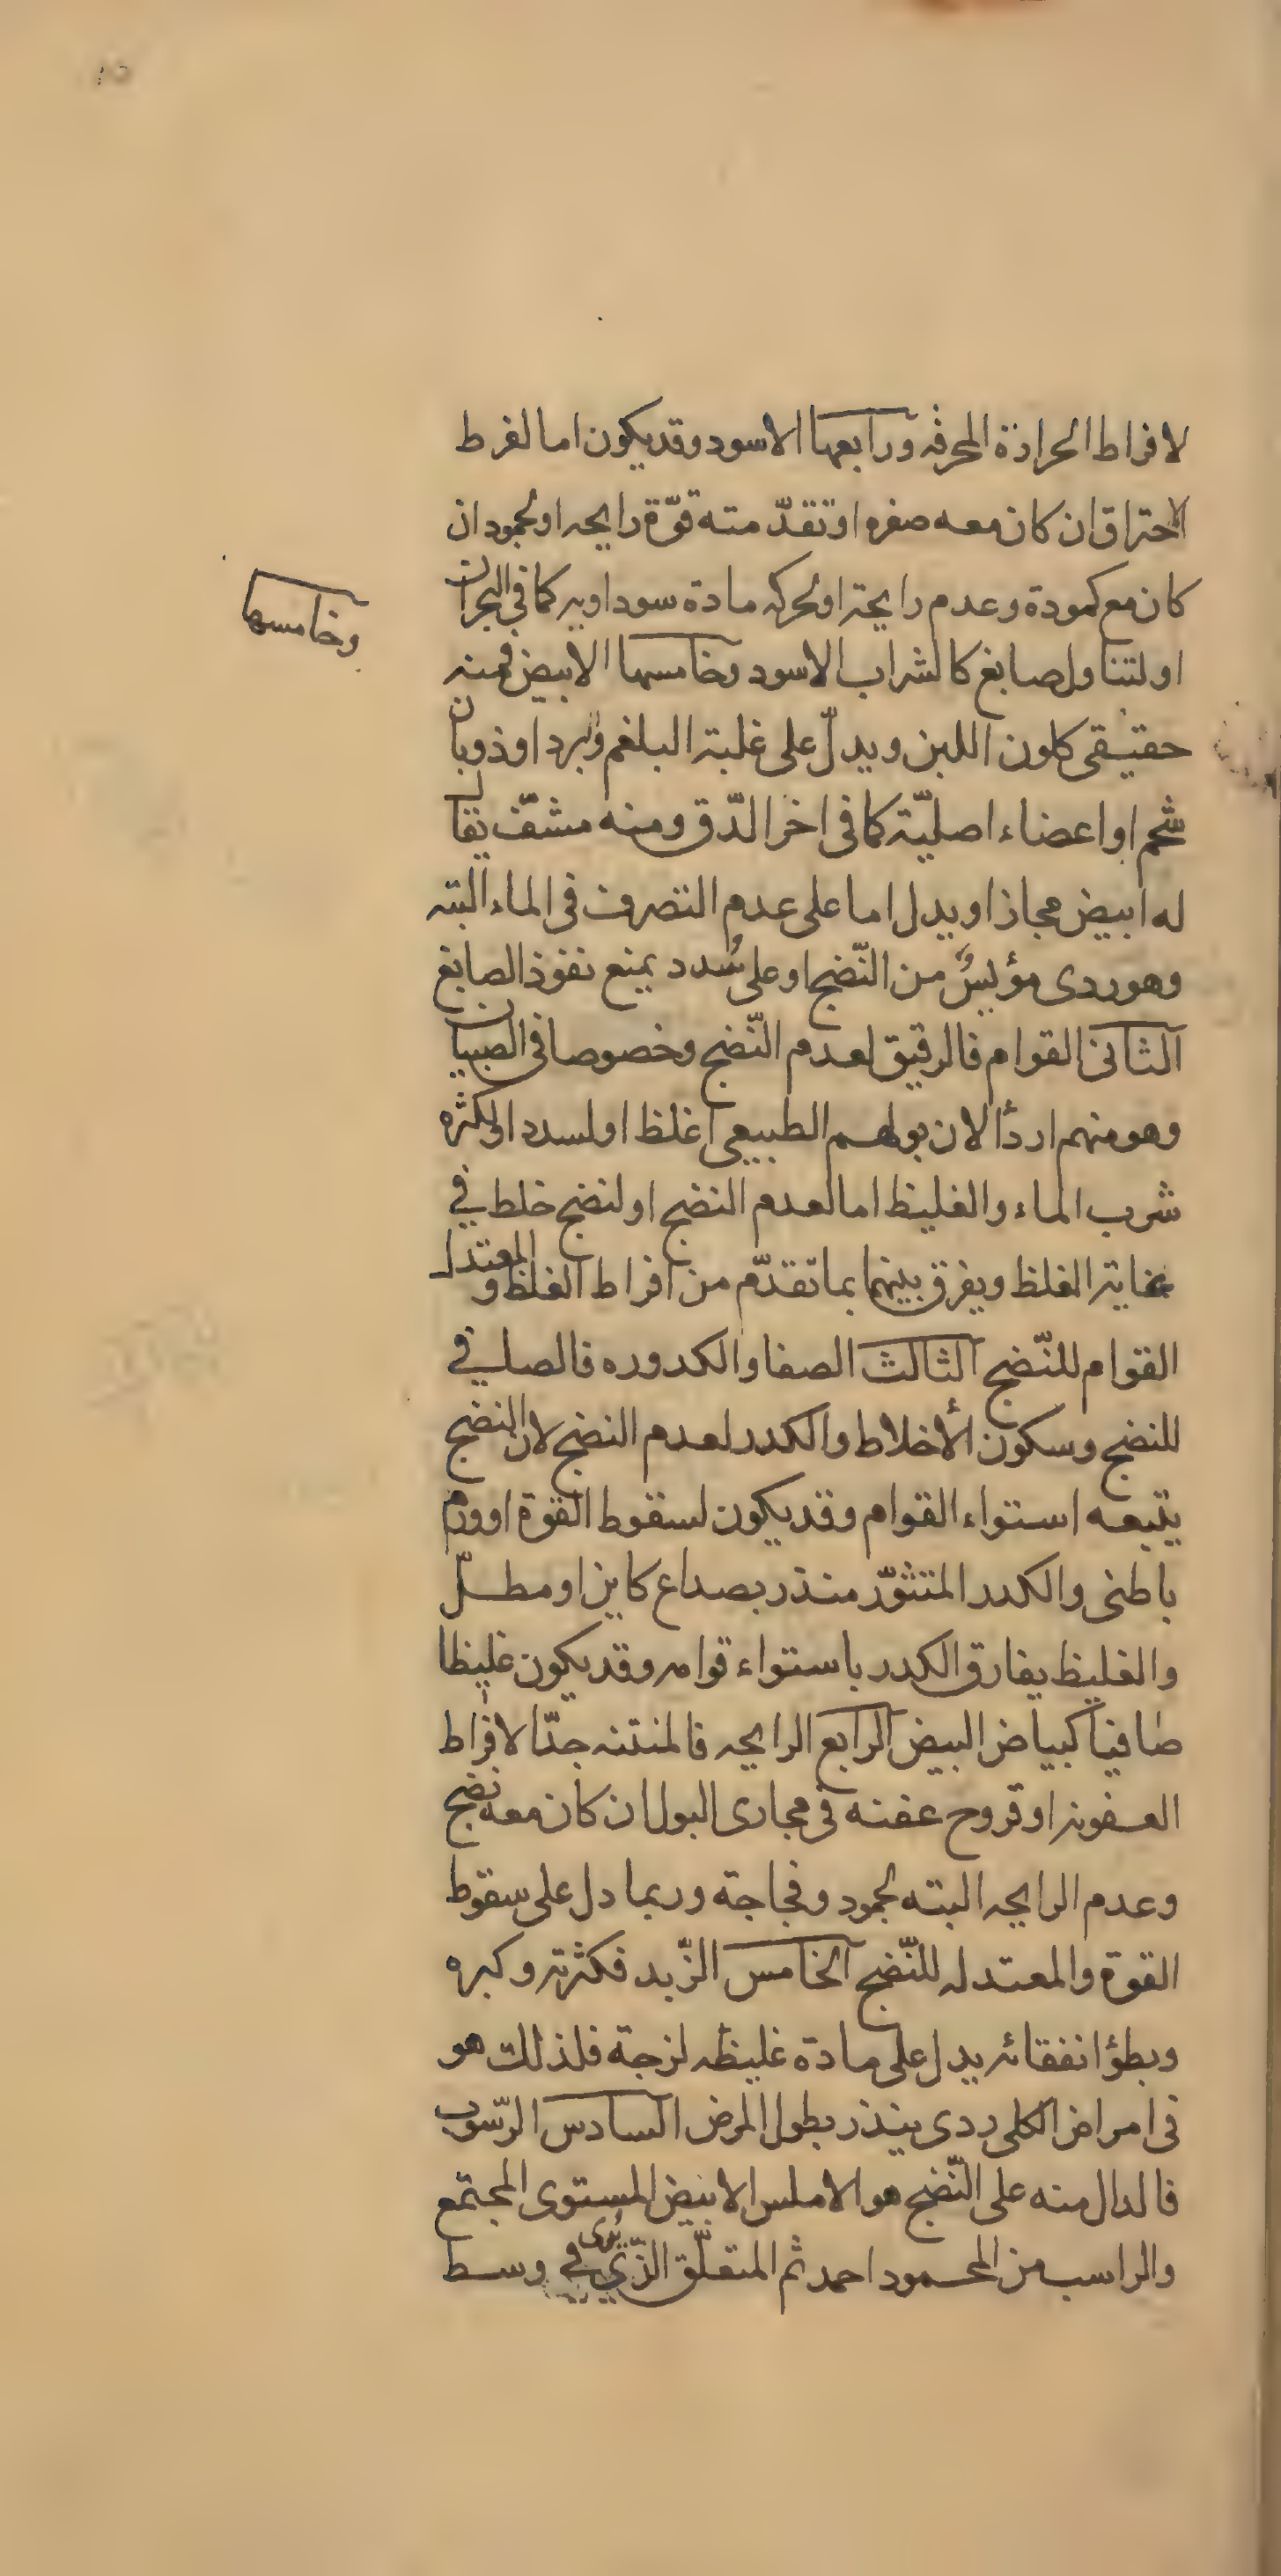 لافراط الحرارة المحرقه ورابعها الاسود وقد يكون اما لفرط
الاحتراق ان كان معه صفره او تقدّمته قوّة رايحه او لجمود ان
كان مع كمودة وعدم رايحة او لحركه مادة سوداويه كما فى البحران
وخامسها
او لتناول صابغ كالشراب الاسود وخامسها الابيض فمنه
حقيقى كلون اللبن ويدلّ على غلبة البلغم وبرد او ذوبان
شحم او اعضاء اصليّة كما فى اخر الدّق ومنه مشفّ يقال
له ابيض مجازا ويدل اما على عدم التصرف فى الماء البتة
وهو ردى مؤيسٌ من النّضج او على سُدد يمنع نفوذ الصابغ
الثانى القوام فالرقيق لعدم النّضج وخصوصا فى الصبيان
وهو منهم اردأ لان بولهم الطبيعى اغلظ او لسدد او لكثره
شرب الماء والغليظ اما لعدم النضج او لنضج خلط في
غاية الغلظ ويفرق بينهما بما تقدّم من افراط الغلظ والمعتدل
القوام للنّضج الثالث الصفا والكدوره فالصافي
للنضج وسكون الأخلاط والكدر لعدم النضج لان النضج
يتبعه استواء القوام وقد يكون لسقوط القوة او ورم
باطنى والكدر المتثوّر منذر بصداع كاين او مطلّ
والغليظ يفارق الكدر باستواء قوامه وقد يكون غليظا
صافيا كبياض البيض الرابع الرايحه فالمنتنه جدّا لافراط
العفونه او قروح عفنه فى مجارى البول ان كان معه نضج
وعدم الرايحه البته لجمود وفجاجة وربما دل على سقوط
القوة والمعتدله للنّضج الخامس الزّبد فكثرته وكبره
وبطؤ انفقائه يدل على مادة غليظه لزجة فلذلك هو
فى امراض الكلى ردى ينذر بطول المرض السادس الرّسوب
فالدال منه على النّضج هو الاملس الابيض المستوى المجتمع
والراسب من المحمود احمد ثم المتعلّق الذّي يُرى في وسط